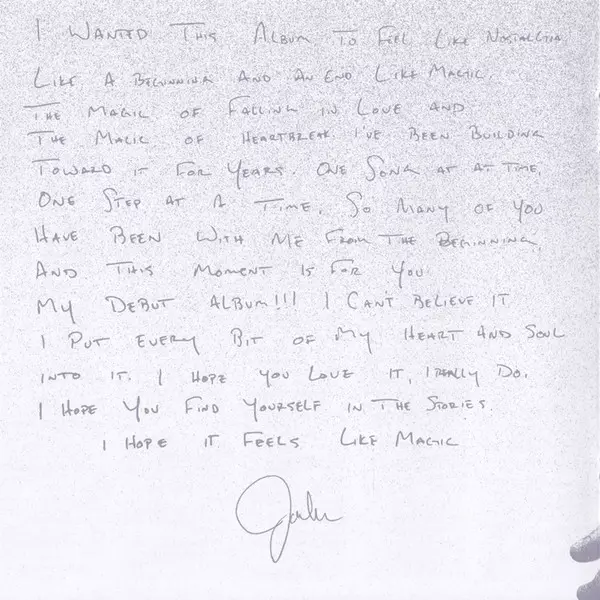 I WANTED THIS ALBUM TO FEEL LIKE NOSTALGIA
LIKE A BEGINNING AND AN END LIKE MAGIC.
THE MAGIC OF FALLING IN LOVE AND
THE MAGIC OF HEARTBREAK. I'VE BEEN BUILDING
TOWARD IT FOR YEARS. ONE SONG AT A TIME,
ONE STEP AT A TIME. SO MANY OF YOU
HAVE BEEN WITH ME FROM THE BEGINNING,
AND THIS MOMENT IS FOR YOU.
MY DEBUT ALBUM!!! I CAN'T BELIEVE IT
I PUT EVERY BIT OF MY HEART AND SOUL
INTO IT. I HOPE YOU LOVE IT, I REALLY DO.
I HOPE YOU FIND YOURSELF IN THE STORIES.
I HOPE IT FEELS LIKE MAGIC